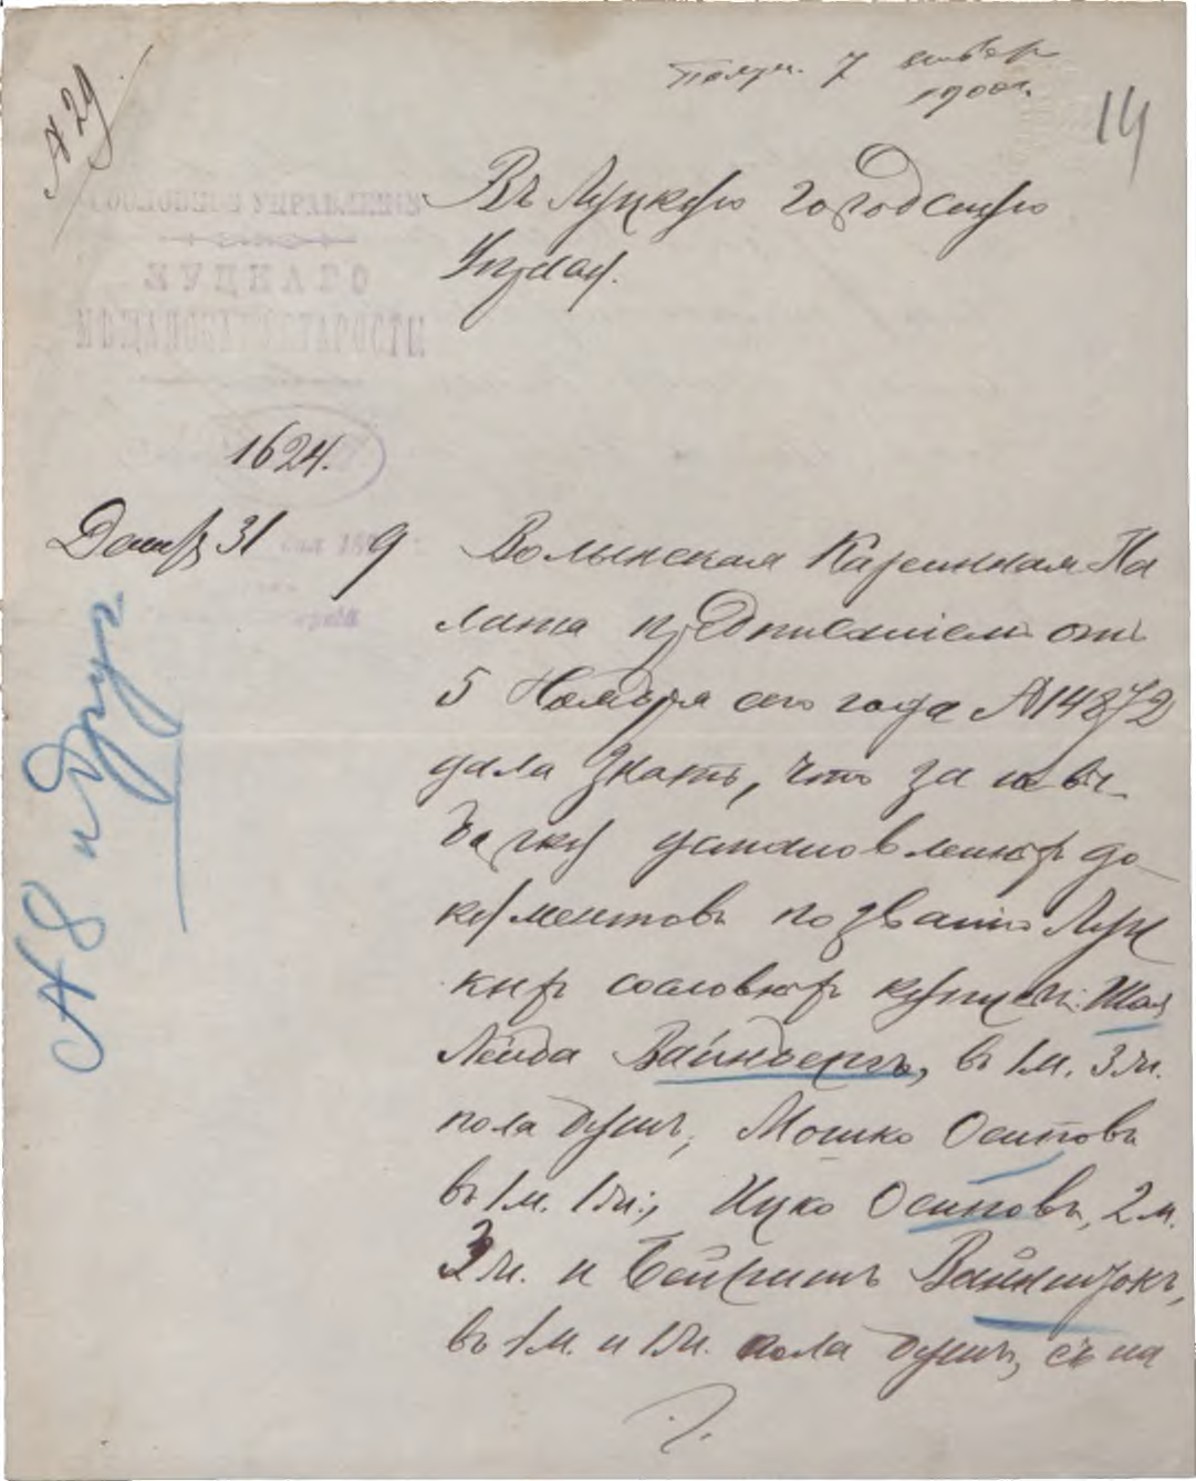 № 29
Получ. 7 январ
1900 г.
14
СОСЛОВНОЕ УПРАВЛЕНІЕ
ЛУЦКАГО
МѢЩАНСКАГО СТАРОСТЫ
Въ Луцкую городскую
Управу.
1624.
Декабр 31 9
№ 8 и друг
Волынская Казенная Па
лата предписаніемъ отъ
5 Ноября сего года № 14872
дала знать, что за невы-
борку установленныхъ до-
кументовъ по званію Луц
кихъ сословныхъ купцовъ: Шая
Лейба Вайнбергъ, въ 1 м. 3 ж.
пола душъ, Мошко Осиповъ
въ 1 м. 1 ж., Ицко Осиповъ, 2 м.
3 ж. и Бейришъ Вайнштокъ,
въ 1 м. и 1 ж. пола душъ, съ на